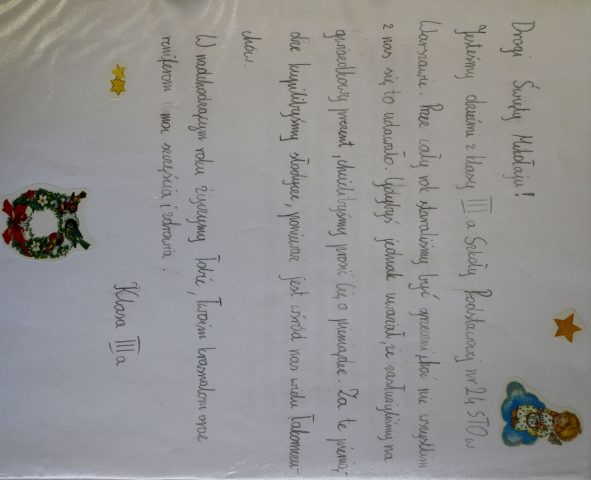 Drogi Święty Mikołaju!
Jesteśmy dziećmi z klasy III a Szkoły Podstawowej nr 24 STO w
Warszawie. Przez cały rok staraliśmy być grzeczni, choć nie wszystkim
z nas się to udawało. Gdybyś jednak uważał, że zasłużyliśmy na
gwiazdkowy prezent, chcielibyśmy prosić Cię o pieniądze. Za te pienią-
dze kupilibyśmy słodycze, ponieważ jest wśród nas wielu łakomczu-
chów.
W nadchodzącym roku życzymy Tobie, Twoim krasnalom oraz
reniferom moc szczęścia i zdrowia.
Klasa III a